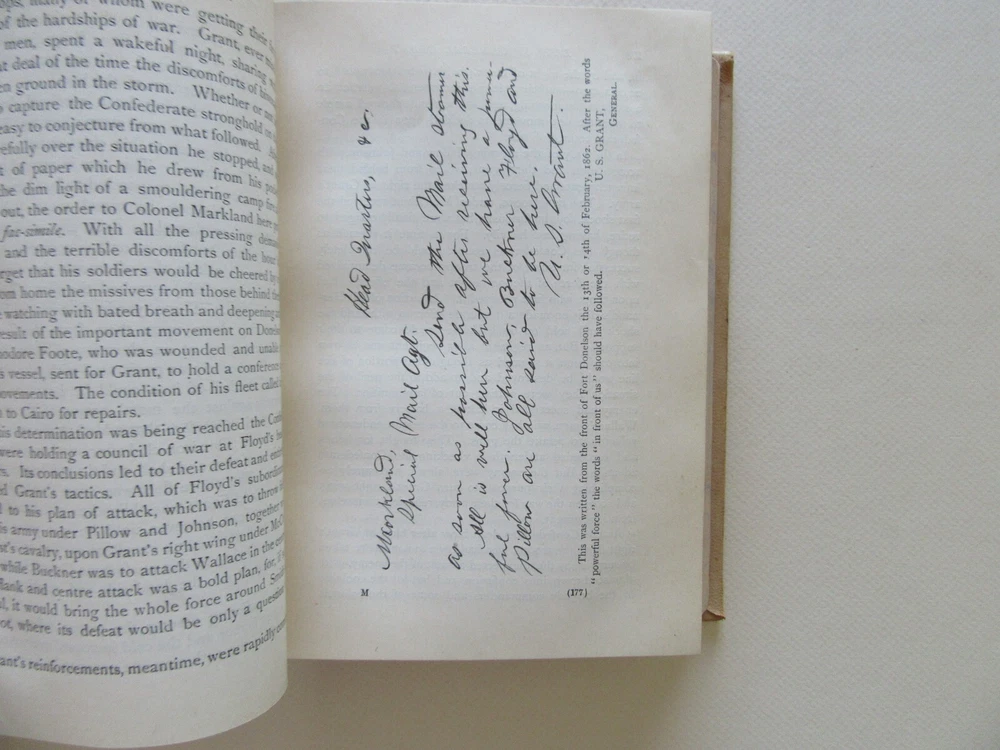 many of whom were getting their
of the hardships of war. Grant, ever
men, spent a wakeful night, sharing
deal of the time the discomforts of
ground in the storm. Whether or
capture the Confederate stronghold
easy to conjecture from what followed.
over the situation he stopped, and
of paper which he drew from his
the dim light of a smouldering camp
out, the order to Colonel Markland here
fac-simile. With all the pressing
and the terrible discomforts of the hour
that his soldiers would be cheered by
home the missives from those behind
watching with bated breath and deepening
result of the important movement on
Foote, who was wounded and
vessel, sent for Grant, to hold a conference
The condition of his fleet called
to Cairo for repairs.
his determination was being reached the
were holding a council of war at Floyd's
Its conclusions led to their defeat and
Grant's tactics. All of Floyd's
to his plan of attack, which was to throw
army under Pillow and Johnson, together
cavalry, upon Grant's right wing under
while Buckner was to attack Wallace in the
and centre attack was a bold plan, for, if
it would bring the whole force around
where its defeat would be only a
reinforcements, meantime, were rapidly
Head Quarters, &c.
Markland,
Special Mail Agt.
Send the Mail steamer
as soon as possible after receiving this.
All is well here but we have a power-
ful force. Johnson, Buckner Floyd and
Pillow are all said to be here.
U. S. Grant.
This was written from the front of Fort Donelson the 13th or 14th of February, 1862. After the words
"powerful force" the words "in front of us" should have followed. U. S. GRANT,
GENERAL.
M (177)